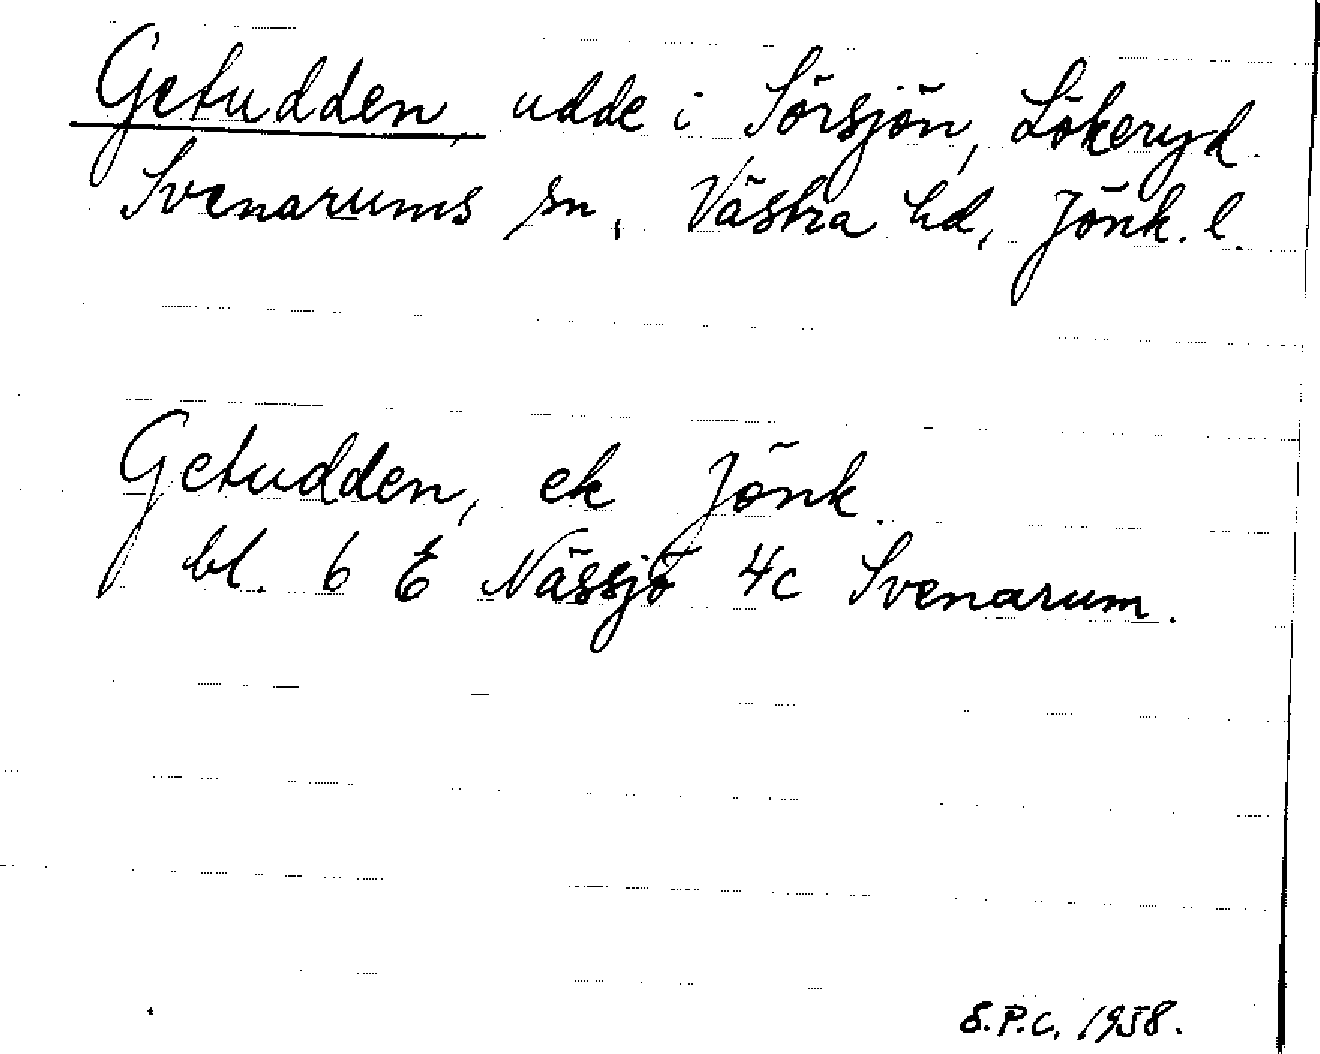 Getudden, udde i Sörsjön, Lökeryd.
Svenarums sn, Västra hd, Jönk. l.
Getudden, ek Jönk.
bl. 6 E Nässjö 4c Svenarum.
S.P.C. 1958.